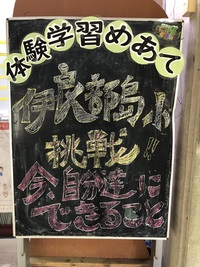 体験学習めあて
伊良部島小
挑戦!!
今、自分達に
できること